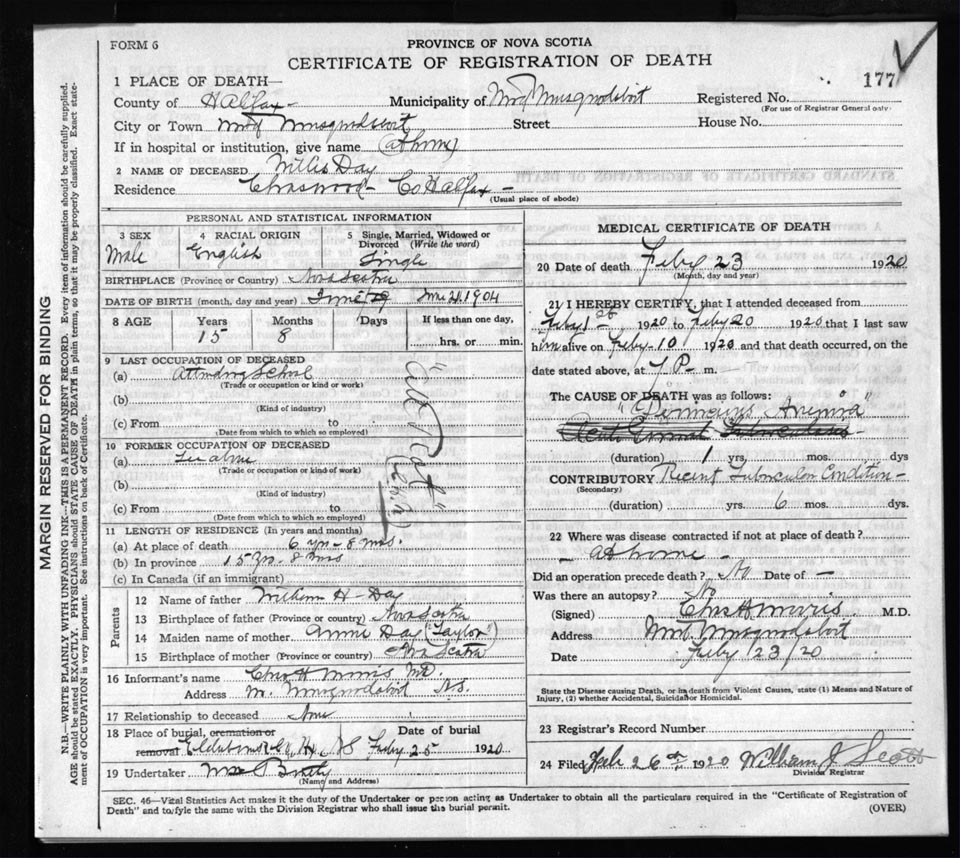 FORM 6
PROVINCE OF NOVA SCOTIA
CERTIFICATE OF REGISTRATION OF DEATH
177
1 PLACE OF DEATH—
County of Halifax - Municipality of Mid Musquodoboit Registered No.
(For use of Registrar General only)
City or Town Mid Street House No.
If in hospital or institution, give name (at home)
2 NAME OF DECEASED Willis Day
Residence Co Halifax -
(Usual place of abode)
PERSONAL AND STATISTICAL INFORMATION
3 SEX 4 RACIAL ORIGIN 5 Single, Married, Widowed or Divorced (Write the word)
Male English Single
BIRTHPLACE (Province or Country) Nova Scotia
DATE OF BIRTH (month, day and year) June 21. 1904
8 AGE Years Months Days If less than one day,
15 8 hrs. or min.
9 LAST OCCUPATION OF DECEASED
(a) Attending School
(Trade or occupation or kind or work)
(b)
(Kind of industry)
(c) From to
(Date from which to which so employed)
10 FORMER OCCUPATION OF DECEASED
(a)
(Trade or occupation or kind or work)
(b)
(Kind of industry)
(c) From to
(Date from which to which so employed)
11 LENGTH OF RESIDENCE (In years and months)
(a) At place of death 6 yr - 8 mos.
(b) In province 15 yr. 8 mos
(c) In Canada (if an immigrant)
Parents
12 Name of father William H - Day
13 Birthplace of father (Province or country) Nova Scotia
14 Maiden name of mother Annie Day (Taylor)
15 Birthplace of mother (Province or country) Nova Scotia
16 Informant's name MD.
Address M. Musquodoboit N.S.
17 Relationship to deceased
18 Place of burial, cremation or removal Date of burial
NS Feby 25 1920
19 Undertaker
(Name and Address)
MEDICAL CERTIFICATE OF DEATH
20 Date of death Feby 23 1920
(Month, day and year)
21 I HEREBY CERTIFY, that I attended deceased from
Feby 1st 1920 to Feby 20 1920 that I last saw
him alive on Feby - 10 1920 and that death occurred, on the
date stated above, at P - m.
The CAUSE OF DEATH was as follows:
"Pernicious Anemia"
Tuberculosis
(duration) 1 yrs. mos. dys
CONTRIBUTORY Recent Tubercular Condition -
(Secondary)
(duration) yrs. 6 mos. dys.
22 Where was disease contracted if not at place of death?
at home -
Did an operation precede death? No Date of —
Was there an autopsy? No
(Signed) M.D.
Address Mid. Musquodoboit
Date Feby 23/20
State the Disease causing Death, or in death from Violent Causes, state (1) Means and Nature of
Injury, (2) whether Accidental, Suicidal or Homicidal.
23 Registrar's Record Number
24 Filed Feb 26th 1920 William J Scott
Division Registrar
SEC. 46—Vital Statistics Act makes it the duty of the Undertaker or person acting as Undertaker to obtain all the particulars required in the "Certificate of Registration of
Death" and to file the same with the Division Registrar who shall issue the burial permit. (OVER)
MARGIN RESERVED FOR BINDING
N.B.—WRITE PLAINLY WITH UNFADING INK—THIS IS A PERMANENT RECORD. Every item of information should be carefully supplied.
AGE should be stated EXACTLY. PHYSICIANS should STATE CAUSE OF DEATH in plain terms, so that it may be properly classified. Exact state-
ment of OCCUPATION is very important. See instructions on back of Certificate.